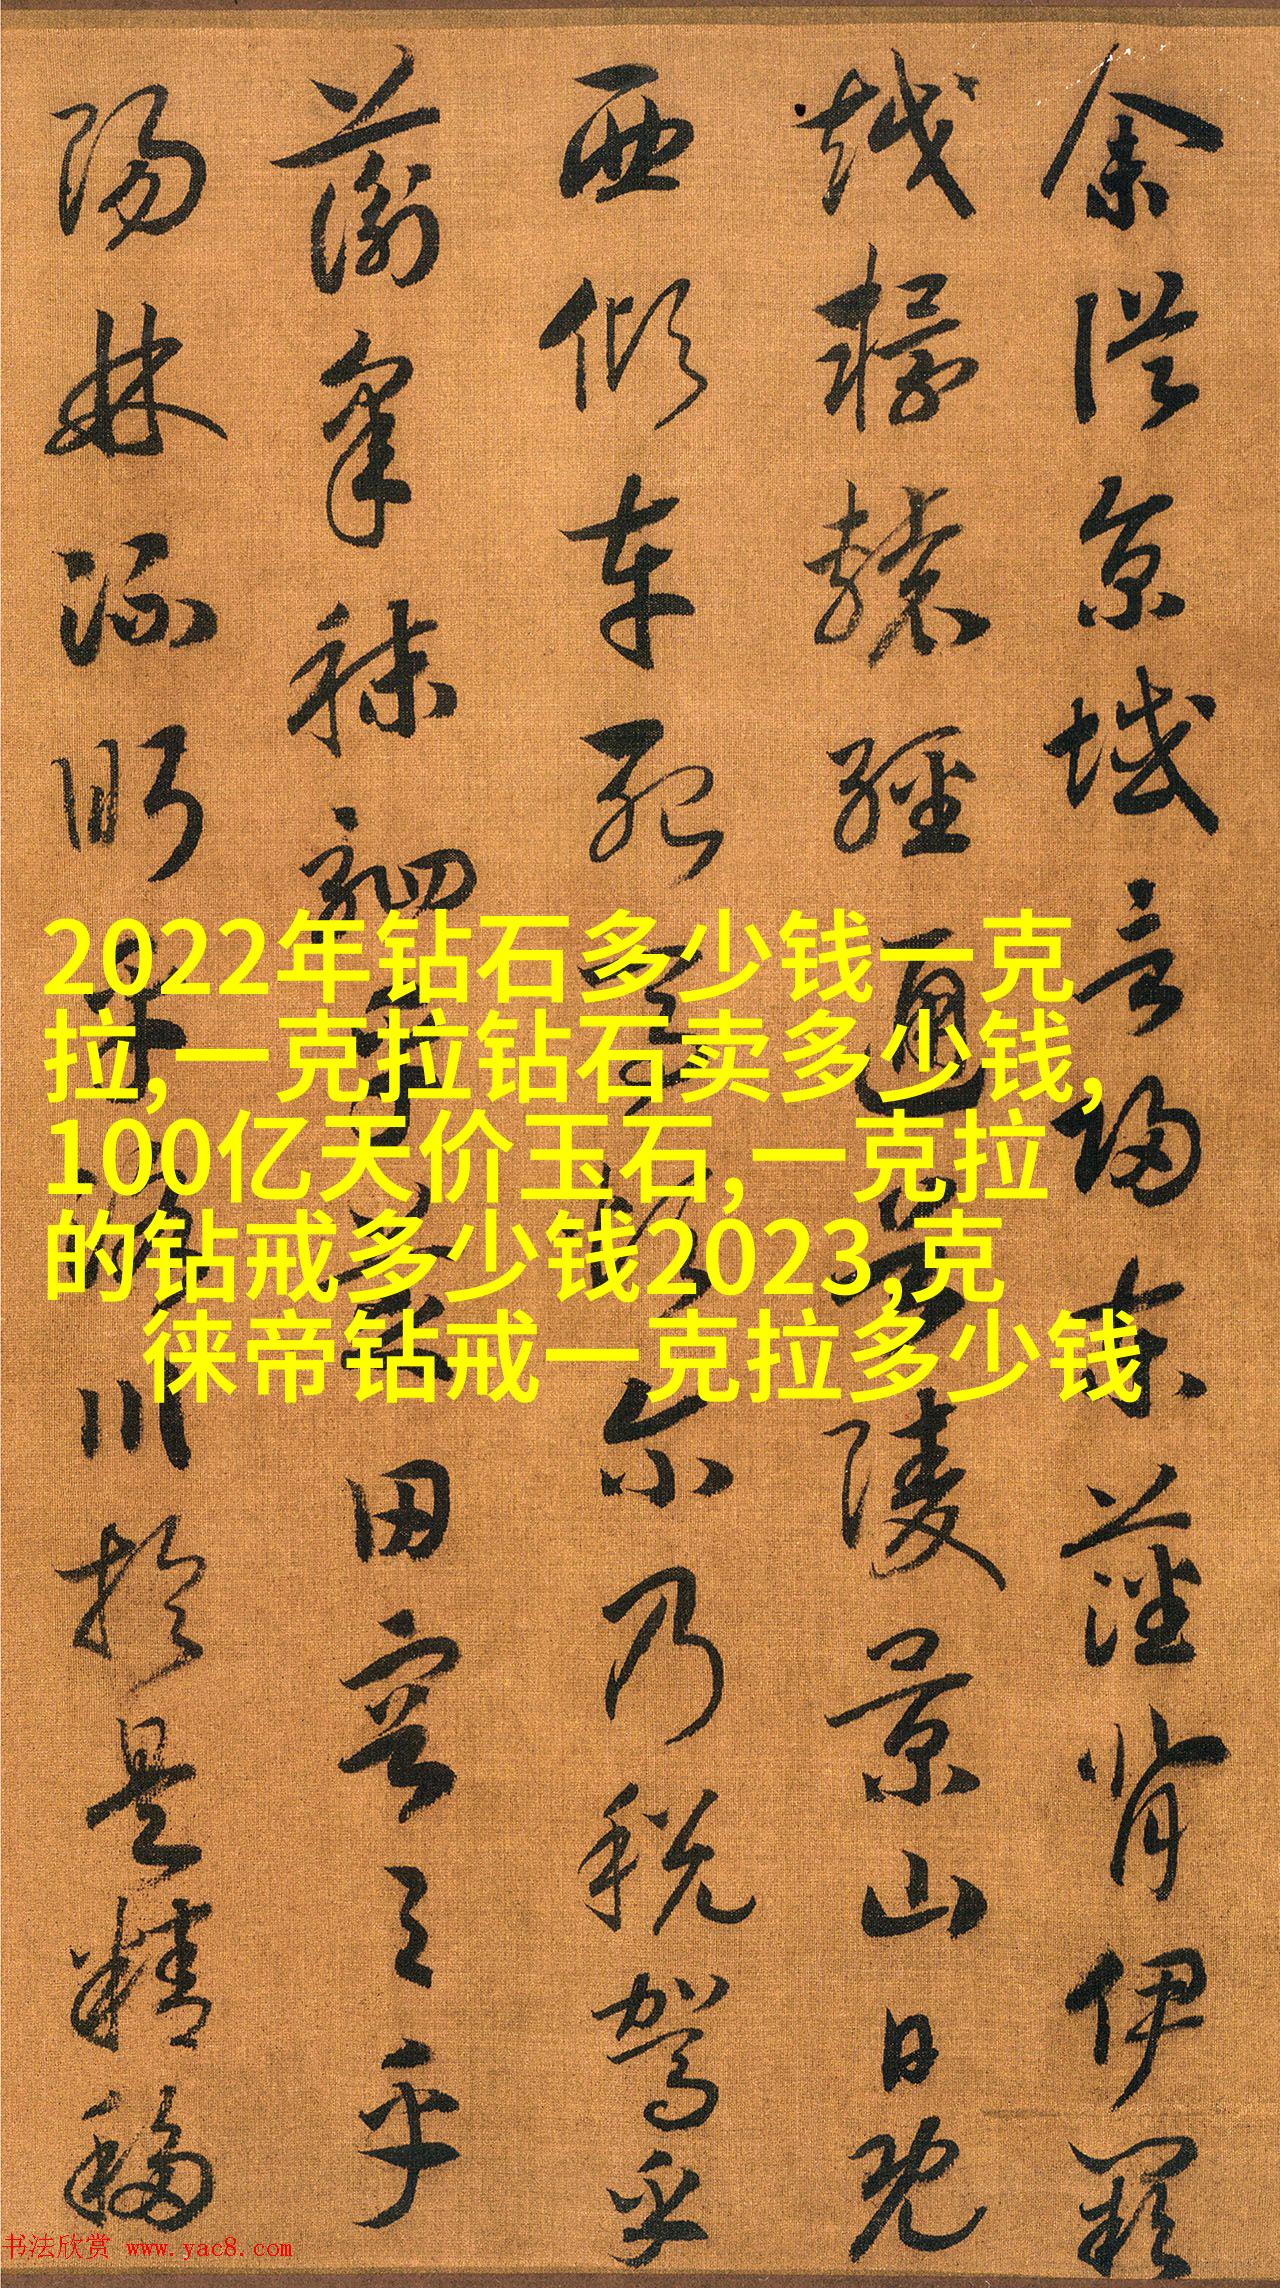 余從京域言歸東藩背伊闕
越轘轅經通谷陵景山日既
西傾車殆馬煩尔乃税駕乎
蘅皋秣駟乎芝田容与乎
陽林流眄乎洛川於是精移
2022年钻石多少钱一克
拉,一克拉钻石卖多少钱,
100亿天价玉石,一克拉
的钻戒多少钱2023,克
徕帝钻戒一克拉多少钱
书法欣赏 www.yac8.com